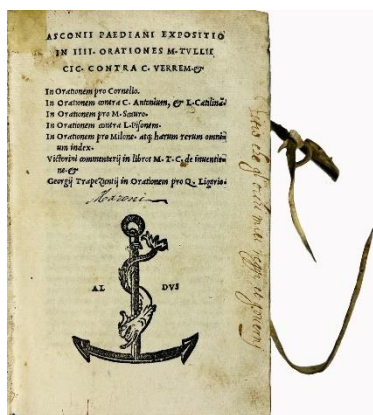 ASCONII PAEDIANI EXPOSITIO
IN IIII. ORATIONES M. TVLLII
CIC. CONTRA C. VERREM. &
In Orationem pro Cornelio.
In Orationem contra C. Antonium, & L. Catilinā.
In Orationem pro M. Scauro.
In Orationem contra L. Pisonem.
In Orationem pro Milone. atq; harum rerum omni
um index.
Victorini commentarij in libros M. T. C. de inuentio
ne. &
Georgij Trapezuntij in Orationem pro Q. Ligario.
AL DVS